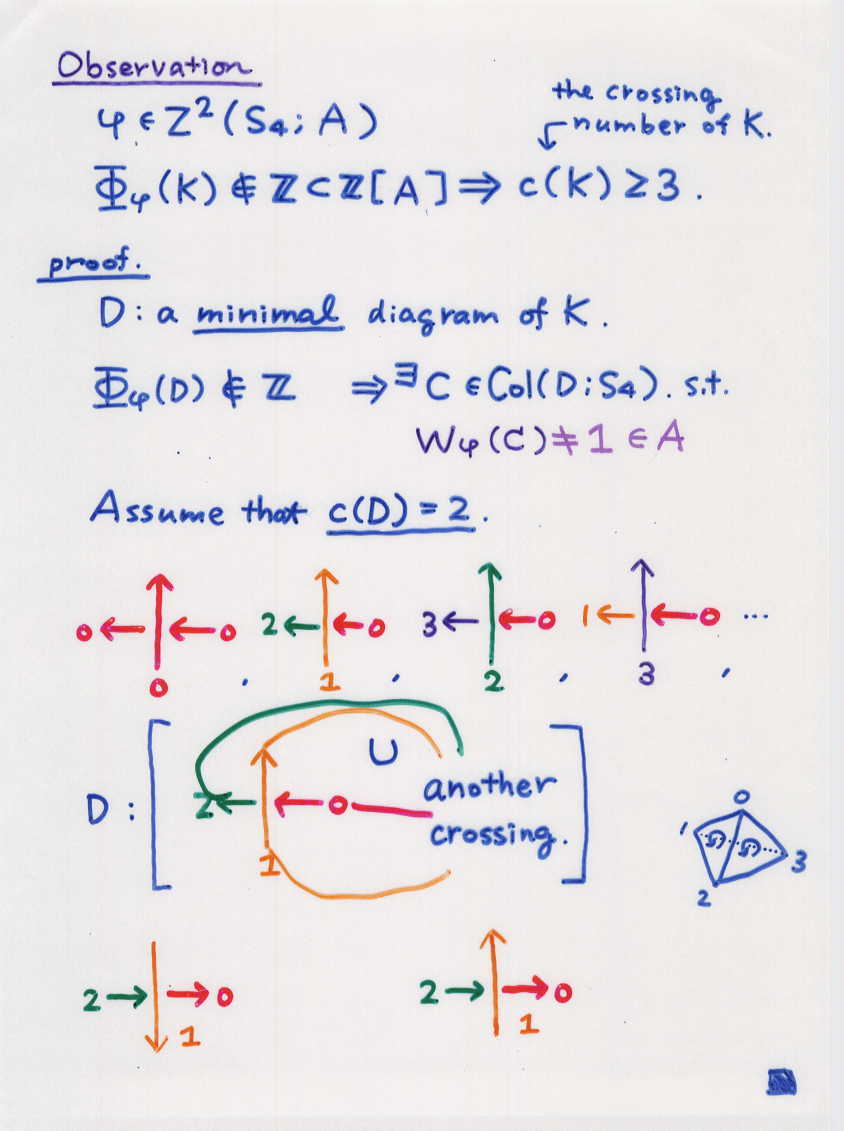 Observation
φ ∈ Z²(S₄; A)
the crossing
number of K.
Φφ(K) ∉ ℤ ⊂ ℤ[A] ⇒ c(K) ≥ 3.
proof.
D: a minimal diagram of K.
Φφ(D) ∉ ℤ ⇒ ∃C ∈ Col(D; S₄). s.t.
Wφ(C) ≠ 1 ∈ A
Assume that c(D) = 2.
0 ← ← 0 2 ← ← 0 3 ← ← 0 1 ← ← 0 ...
0 , 1 , 2 , 3 ,
∪
D: [ 2 ← ← 0 another ]
crossing.
1
0
1 3
2
2 → → 0 2 → → 0
1 1